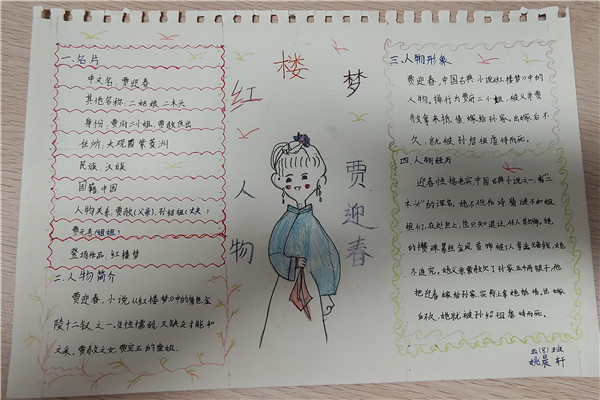 红
楼
梦
人
物
贾
迎
春
一.名片
中文名:贾迎春
其他名称:二姑娘 二木头
身份:贾府二小姐,贾赦庶出
住所:大观园紫菱洲
民族:汉族
国籍:中国
人物关系:贾赦(父亲),孙绍祖(丈夫)
贾元春(姐姐)
登场作品:红楼梦
二.人物简介
贾迎春,小说《红楼梦》中的角色,金
陵十二钗之一,生性懦弱,又缺乏才能和
文采,贾赦之女,贾宝玉的堂姐.
三.人物形象
贾迎春,中国古典小说《红楼梦》中的
人物,排行为贾府二小姐,被父亲贾
赦拿来抵债,嫁给孙家,出嫁后不
久,就被孙绍祖虐待而死。
四.人物经历
迎春性格老实,中国古典小说之一,有"二
木头"的诨名,她不但作诗猜谜不如姐
妹们,在处世上,也只知退让,任人欺侮,她
的攒珠累丝金凤首饰被人拿去赌钱,她
不追究,她父亲贾赦欠了孙家五千两银子,他
把迎春嫁给孙家,实际上拿她抵债,出嫁
后不久,她就被孙绍祖虐待而死。
五(8)班
姚晨轩